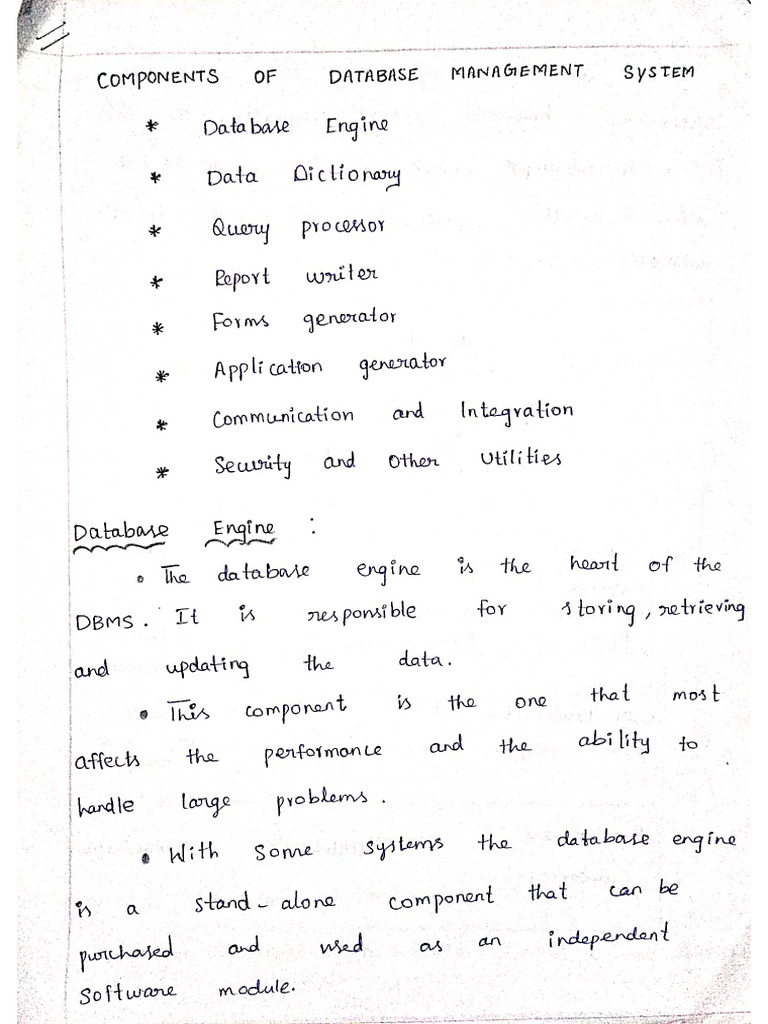 COMPONENTS OF DATABASE MANAGEMENT SYSTEM
* Database Engine
* Data Dictionary
* Query processor
* Report writer
* Forms generator
* Application generator
* Communication and Integration
* Security and Other Utilities
Database Engine :
• The database engine is the heart of the
DBMS. It is responsible for storing, retrieving
and updating the data.
• This component is the one that most
affects the performance and the ability to
handle large problems.
• With some systems the database engine
is a stand-alone component that can be
purchased and used as an independent
Software module.